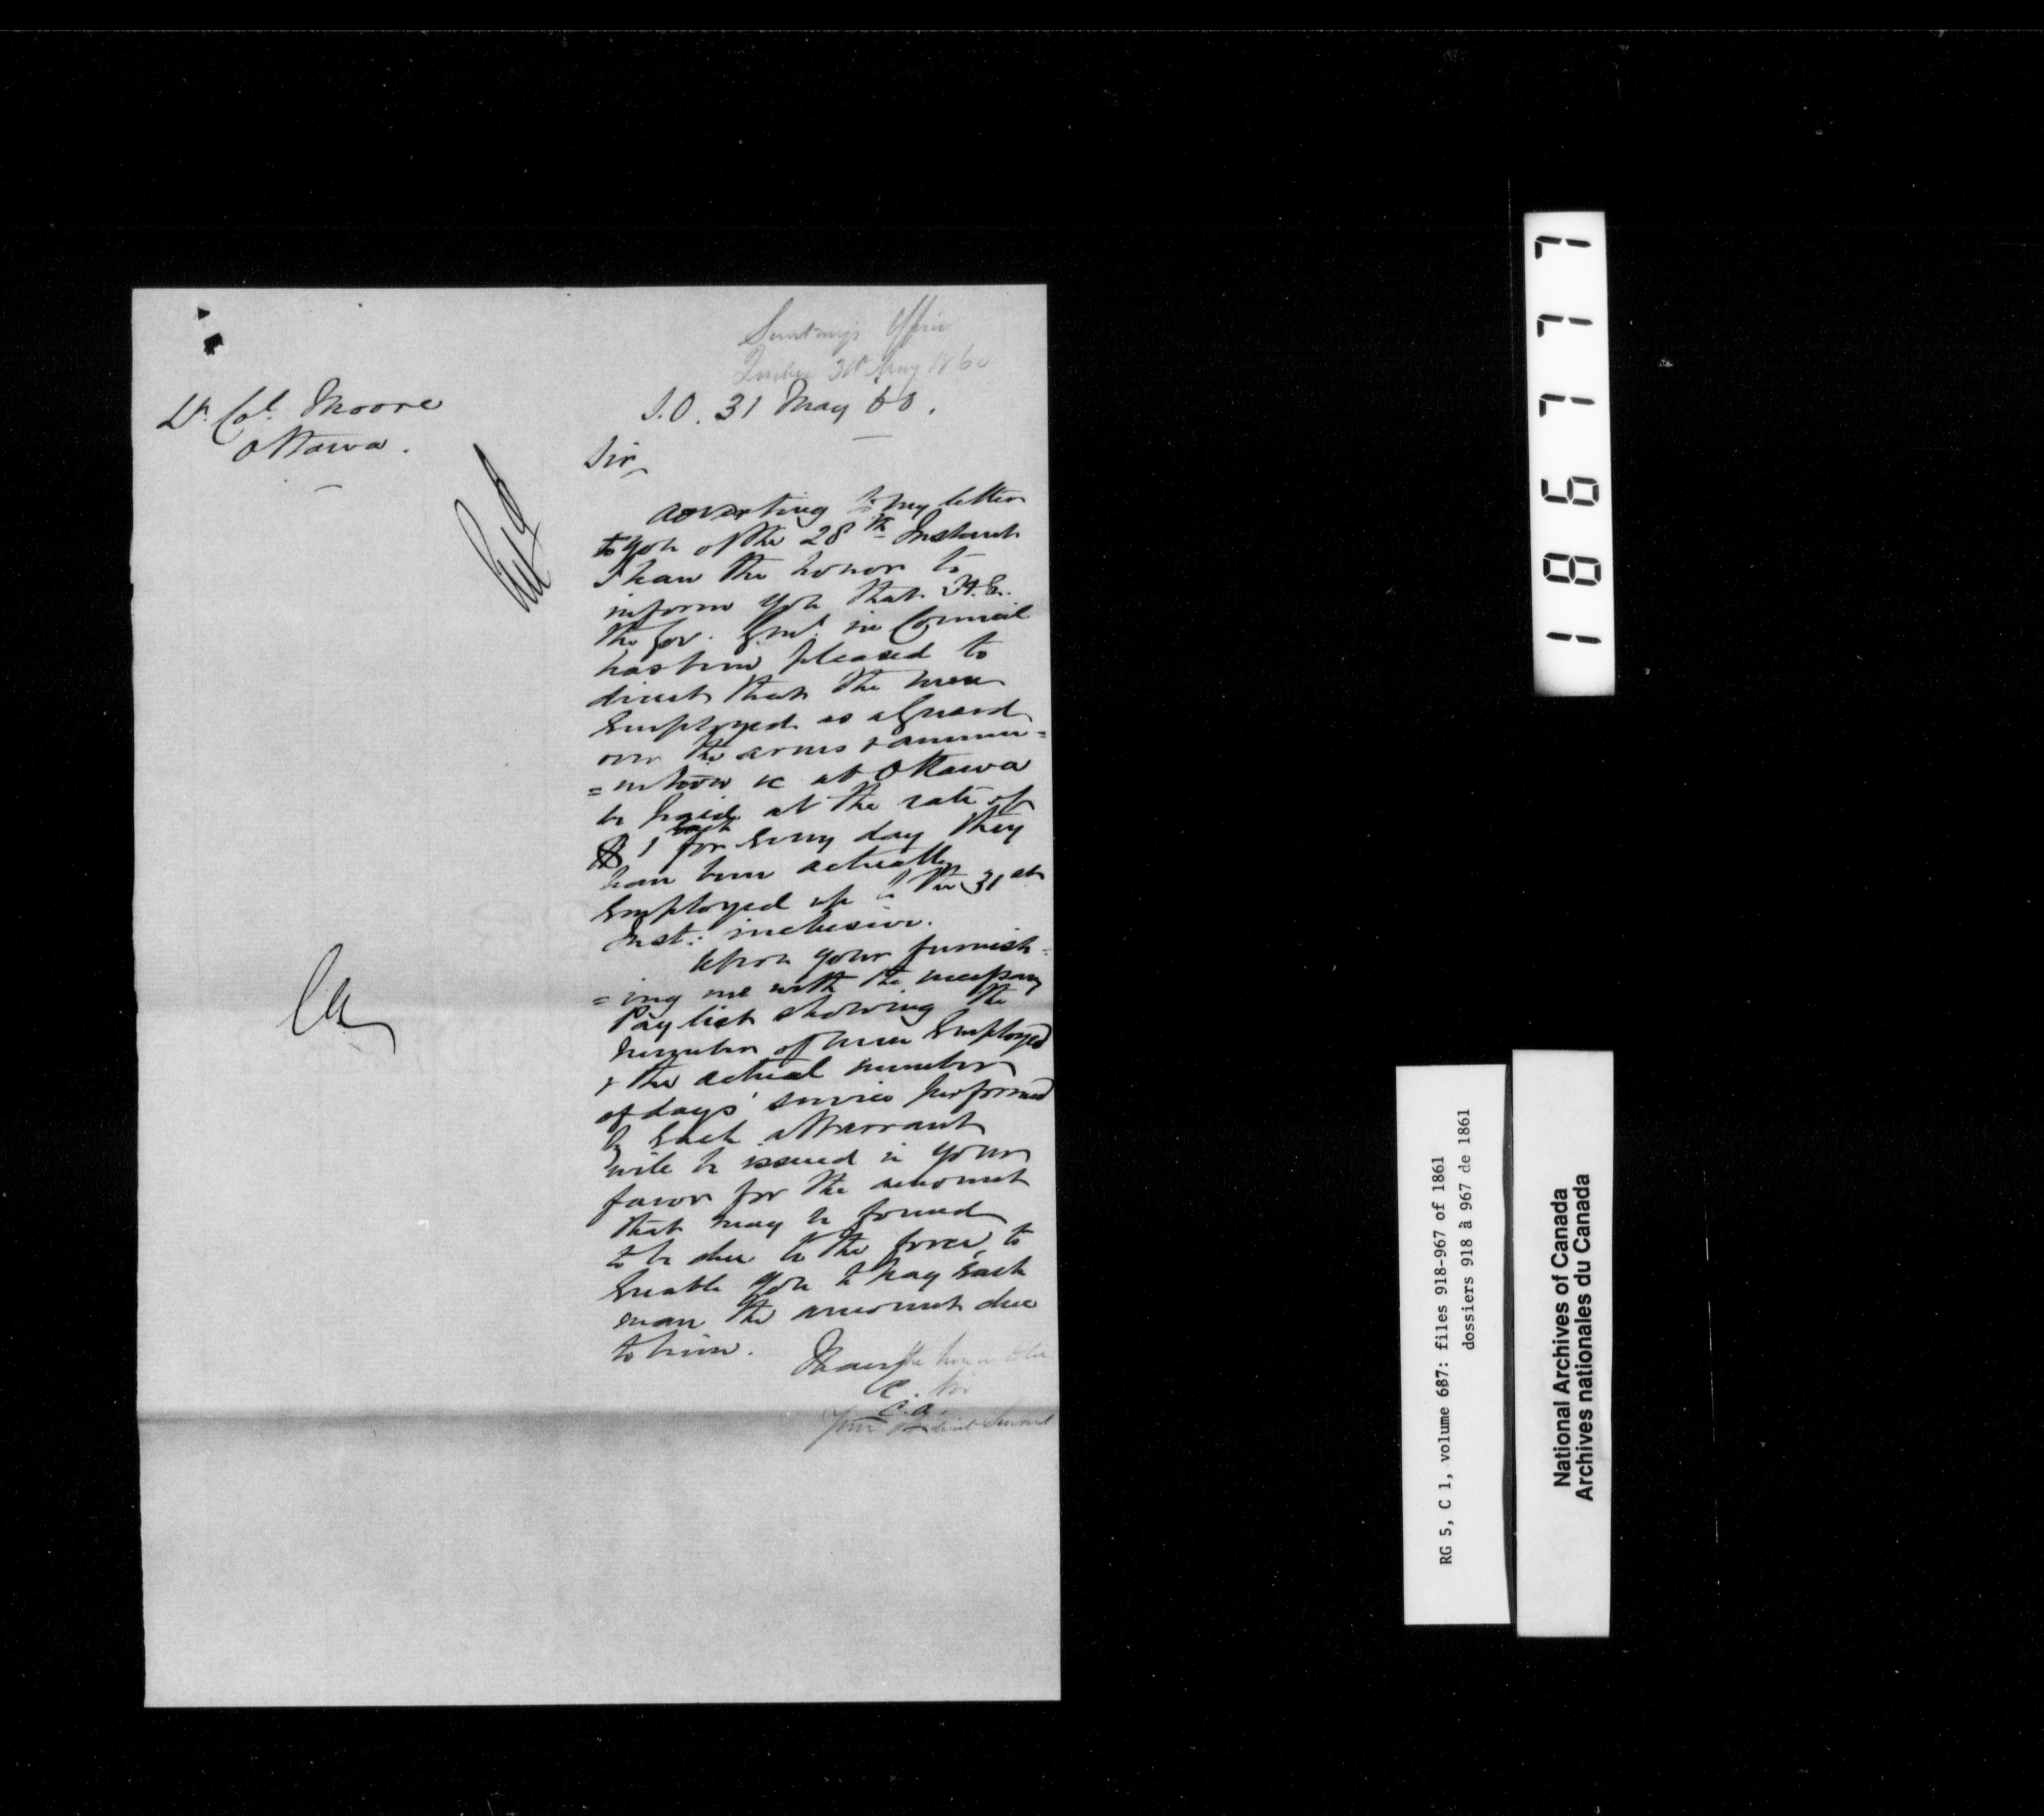 Secretary's Office
Quebec 31st May 1860
S.O. 31 May 60.
Lt. Col. Moore
Ottawa.
Sir,
Adverting to my letter
to you of the 28th Instant
I have the honor to
inform you that H.E.
the Gov. Genl. in Council
has been pleased to
direct that the men
Employed as a Guard
over the arms & ammu=
=nition &c at Ottawa
be paid at the rate of
$1 each for Every day they
have been actually
Employed up to the 31st
Inst: inclusive.
Upon your furnish=
=ing me with the necessary
Pay list showing the
number of men Employed
& the actual number
of days' service performed
by Each a Warrant
will be issued in your
favor for the amount
that may be found
to be due to the force, to
Enable you to pay Each
man the amount due
to him.
I have the honor to be
&c. Sir
C.A.
Your Obedient Servant
CA
1 8 6 7 7 7
RG 5, C 1, volume 687: files 918-967 of 1861
dossiers 918 à 967 de 1861
National Archives of Canada
Archives nationales du Canada